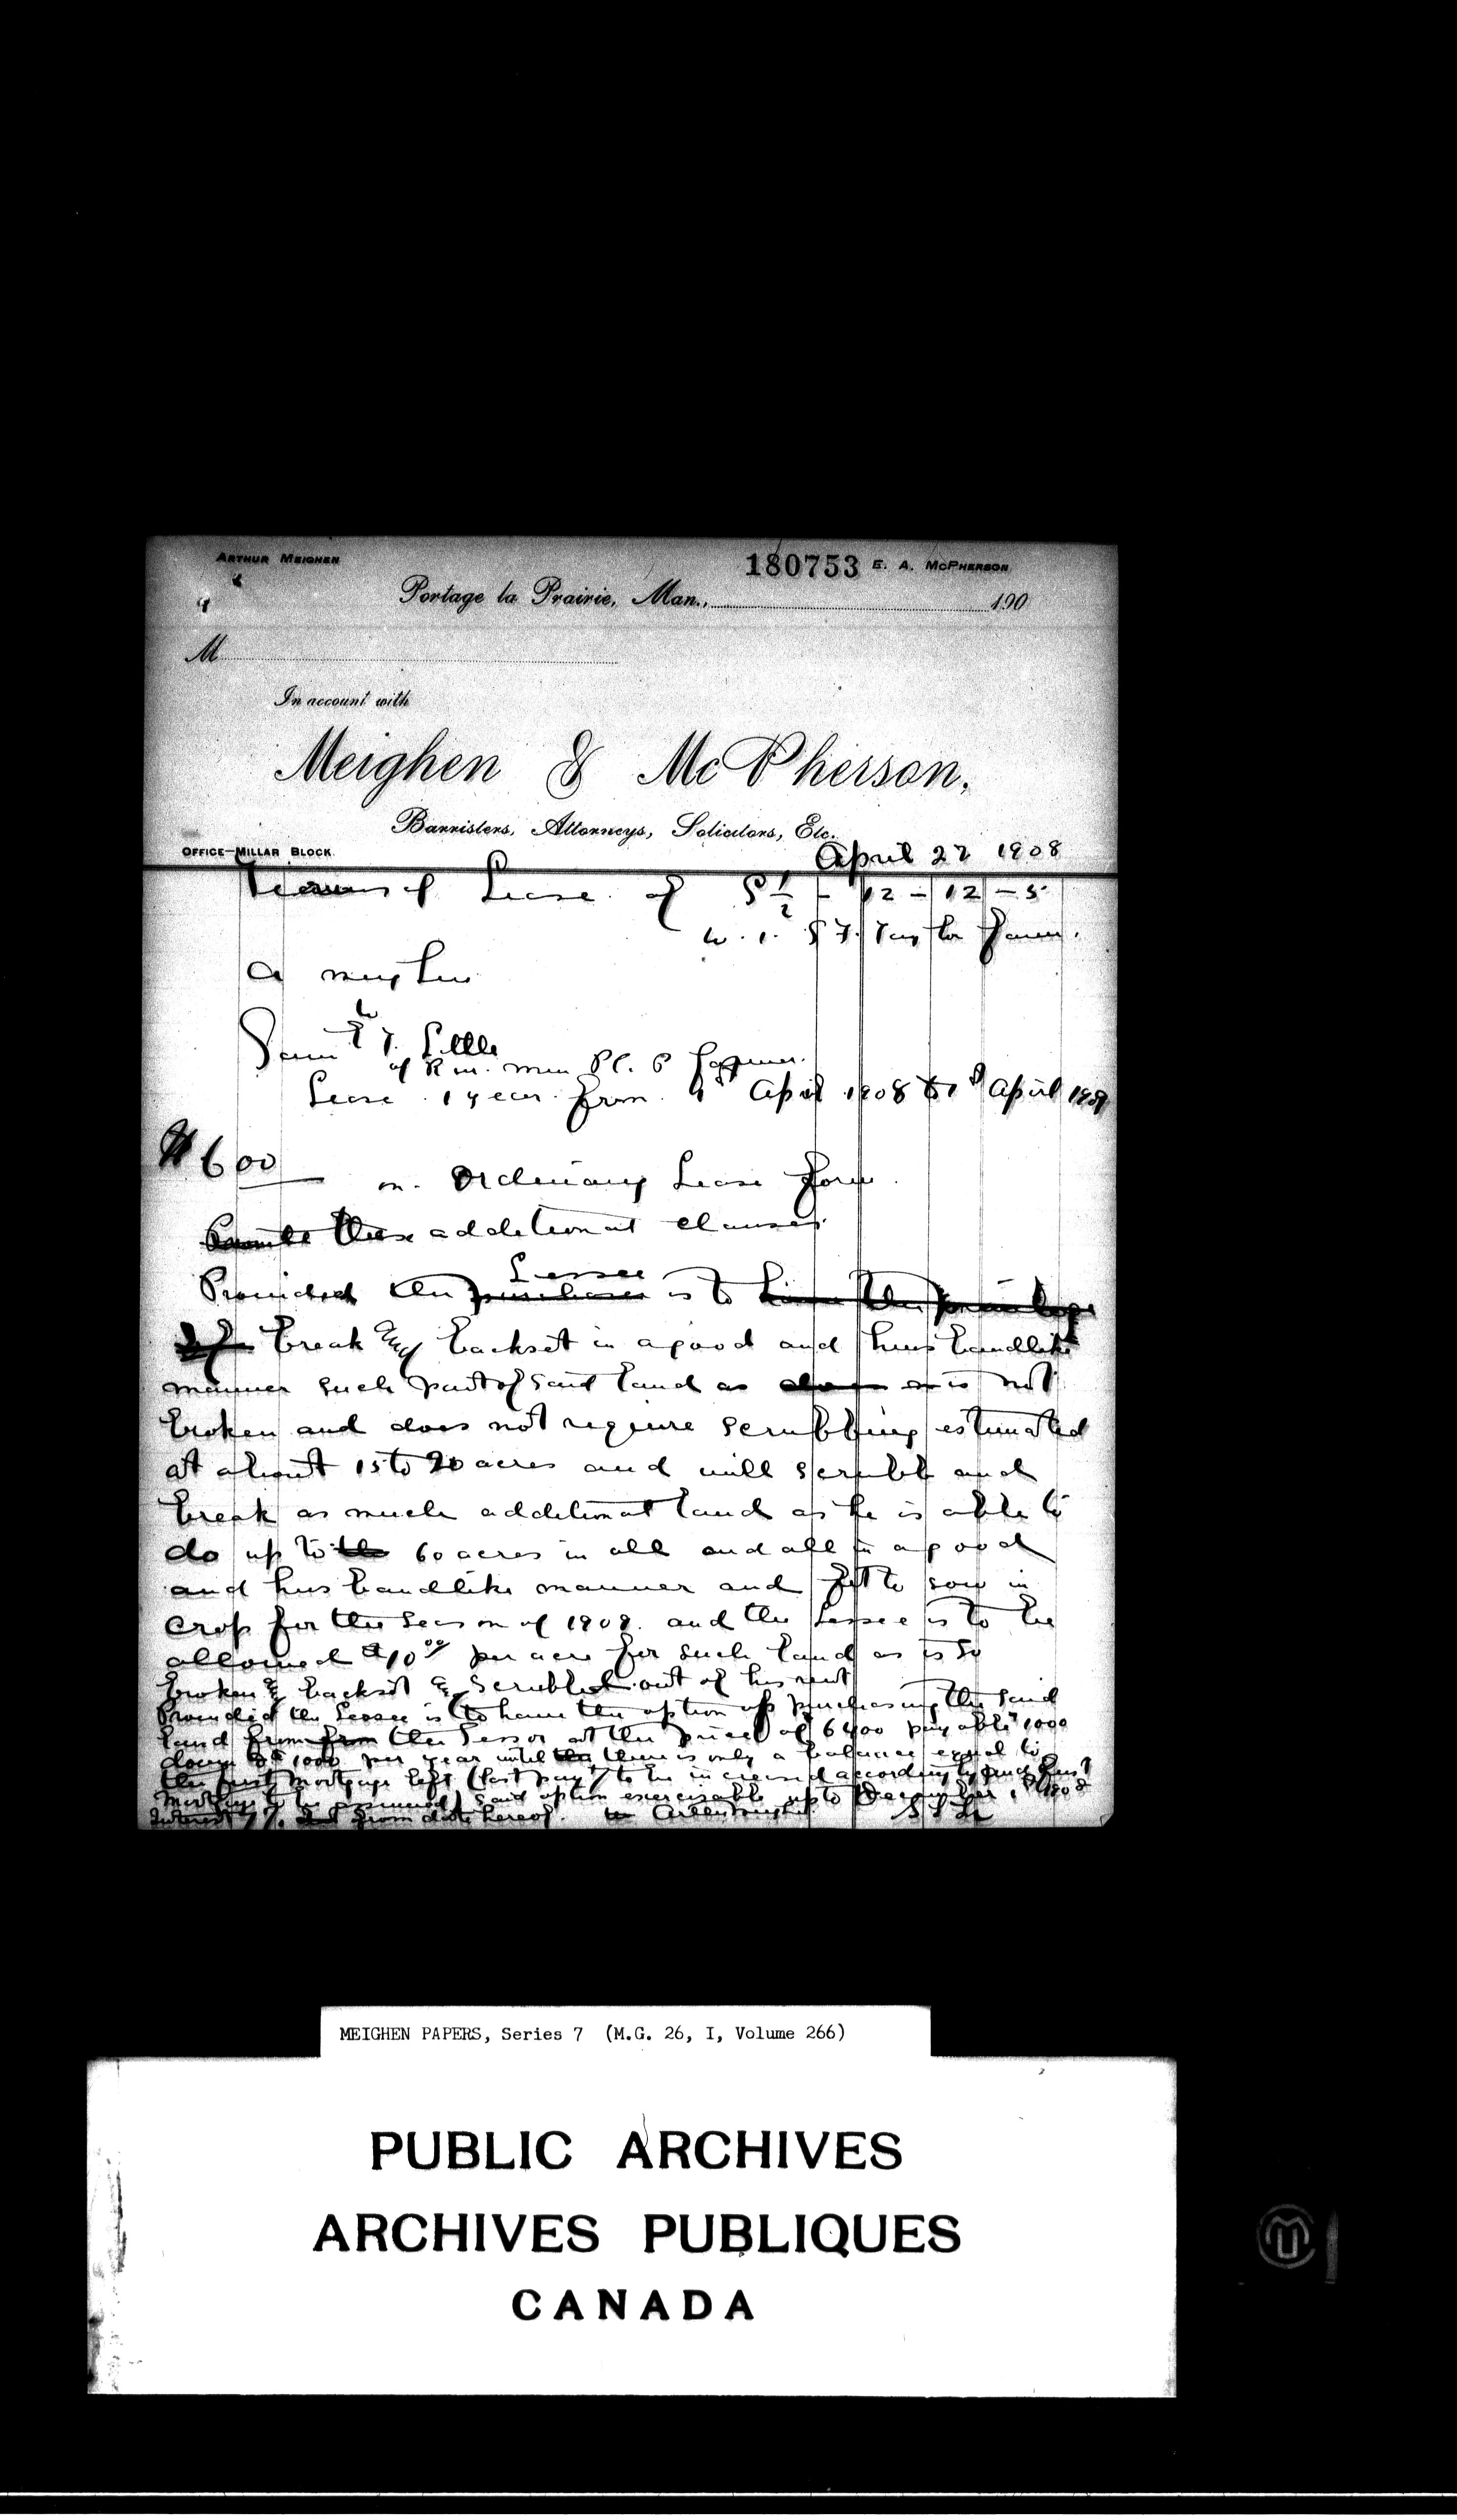 ARTHUR MEIGHEN 180753 E. A. MCPHERSON
Portage la Prairie, Man., 190
M
In account with
Meighen & McPherson,
Barristers, Attorneys, Solicitors, Etc.
OFFICE—MILLAR BLOCK.
April 22 1908
Terms of Lease of S ½ - 12 - 12 - 5
A Meighen
Little
Lease 1 year from 1st April 1908 to 1st April 1909
$600
on Ordinary Lease form
these additional clauses
Lessee
Provided the purchaser is to have the privilege
of break and backset in a good and husbandlike
manner such part of said land as is not
broken and does not require scrubbing estimated
at about 15 to 20 acres and will scrub and
break as much additional land as he is able to
do up to the 60 acres in all and all in a good
and husbandlike manner and fit to sow in
crop for the season of 1909. and the Lessee is to be
allowed $10.00 per acre for such land as is so
broken & backset & scrubbed out of his rent
Provided the Lessee is to have the option of purchasing the said
land from from the Lessor at the price of 6400 payable 1000
down & 1000 per year until the there is only a balance equal to
the first mortgage left (last payt to be increased accordingly and first
mortgage to be assumed) said option exercisable up to December 1st 1908
Interest 7% from date hereof. Arthur Meighen
MEIGHEN PAPERS, Series 7 (M.G. 26, I, Volume 266)
PUBLIC ARCHIVES
ARCHIVES PUBLIQUES
CANADA